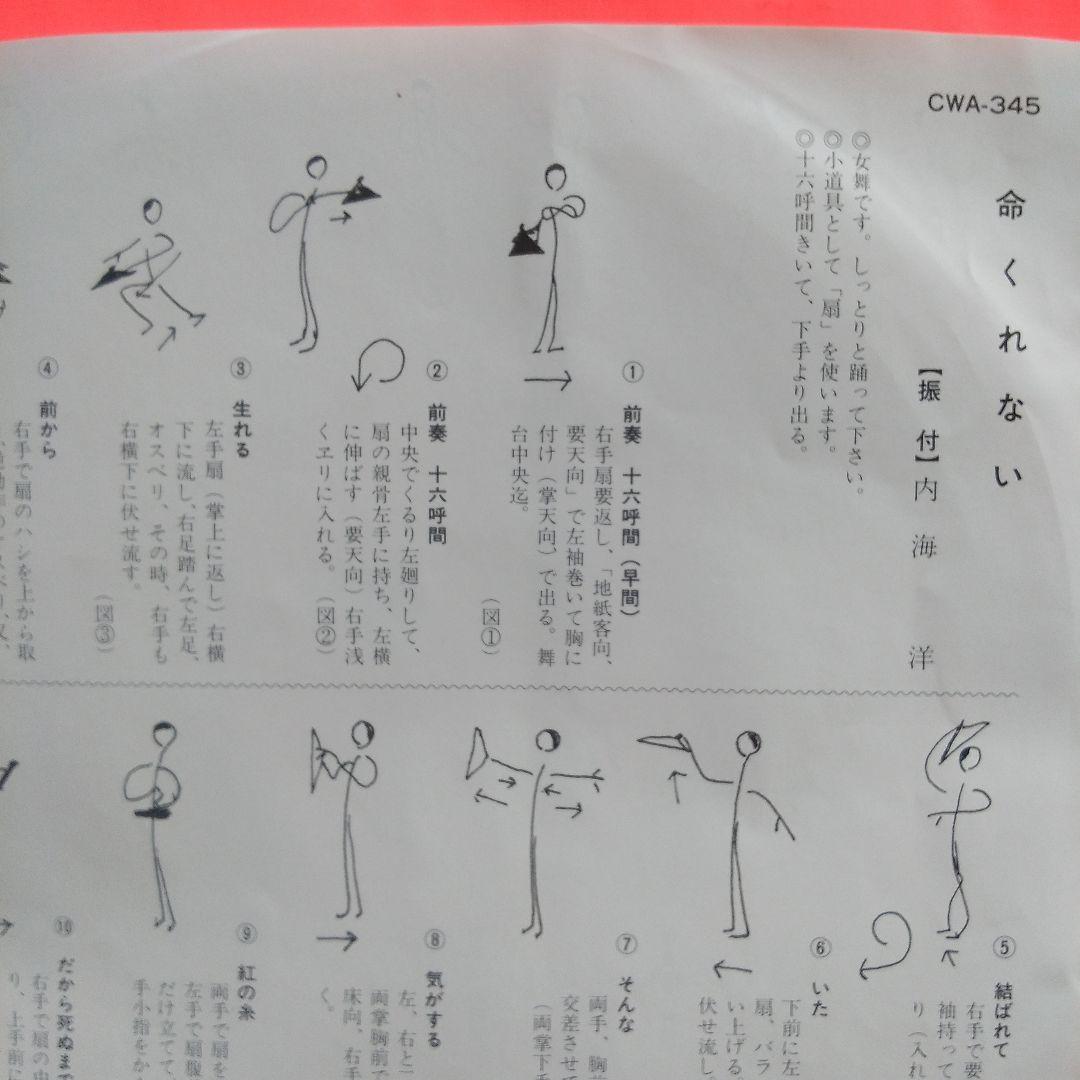 CWA-345
命くれない
【振付】内海洋
◎女舞です。しっとりと踊って下さい。
◎小道具として「扇」を使います。
◎十六呼間きいて、下手より出る。
① 前奏 十六呼間（早間）
右手扇要返し、「地紙客向、
要天向」で左袖巻いて胸に
付け（掌天向）で出る。舞
台中央迄。
（図①）
② 前奏 十六呼間
中央でくるり左廻りして、
扇の親骨左手に持ち、左横
に伸ばす（要天向）右手浅
くヱリに入れる。（図②）
③ 生れる
左手扇（掌上に返し）右横
下に流し、右足踏んで左足、
オスベリ、その時、右手も
右横下に伏せ流す。
（図③）
④ 前から
右手で扇のハシを上から取
⑤ 結ばれて
右手で要
袖持って
り（入れ
⑥ いた
下前に左
扇、バラ
い上げる
伏せ流し
⑦ そんな
両手、胸前
交差させて
（両掌下手
⑧ 気がする
左、右と
両掌胸前で
床向、右手
く。
⑨ 紅の糸
両手で扇を
左手で扇腹
だけ立てて、
手小指をか
⑩ だから死ぬまで
右手で扇の中
り、上手前に